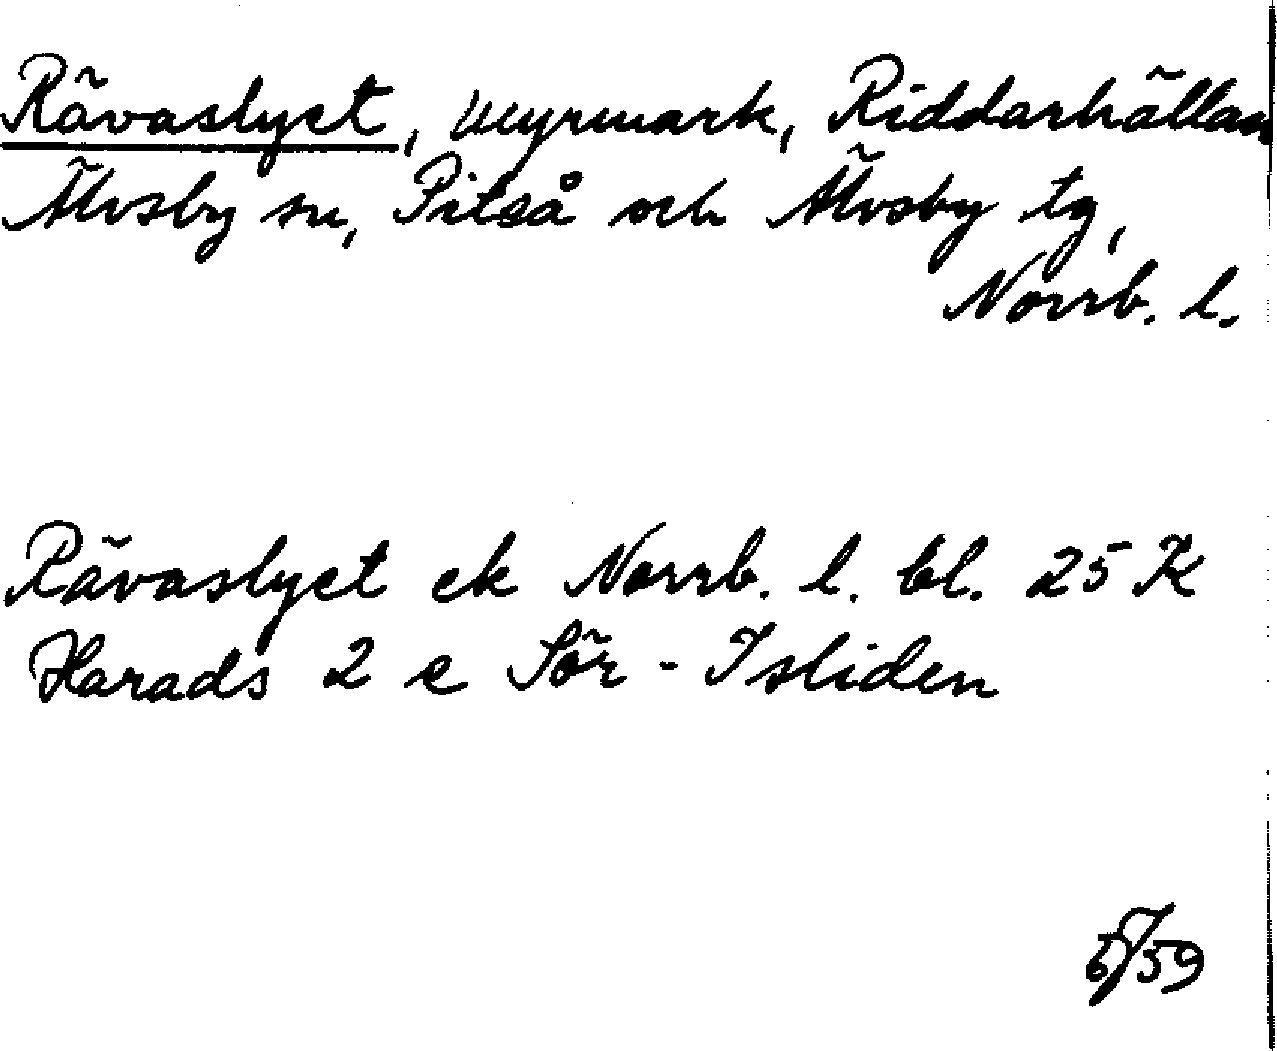 Rävaslyet, myrmark, Riddarhällan
Älvsby sn, Piteå och Älvsby tg,
Norrb. l.
Rävaslyet ek Norrb. l. bl. 25 K
Harads 2 e Sör-Isliden
/59